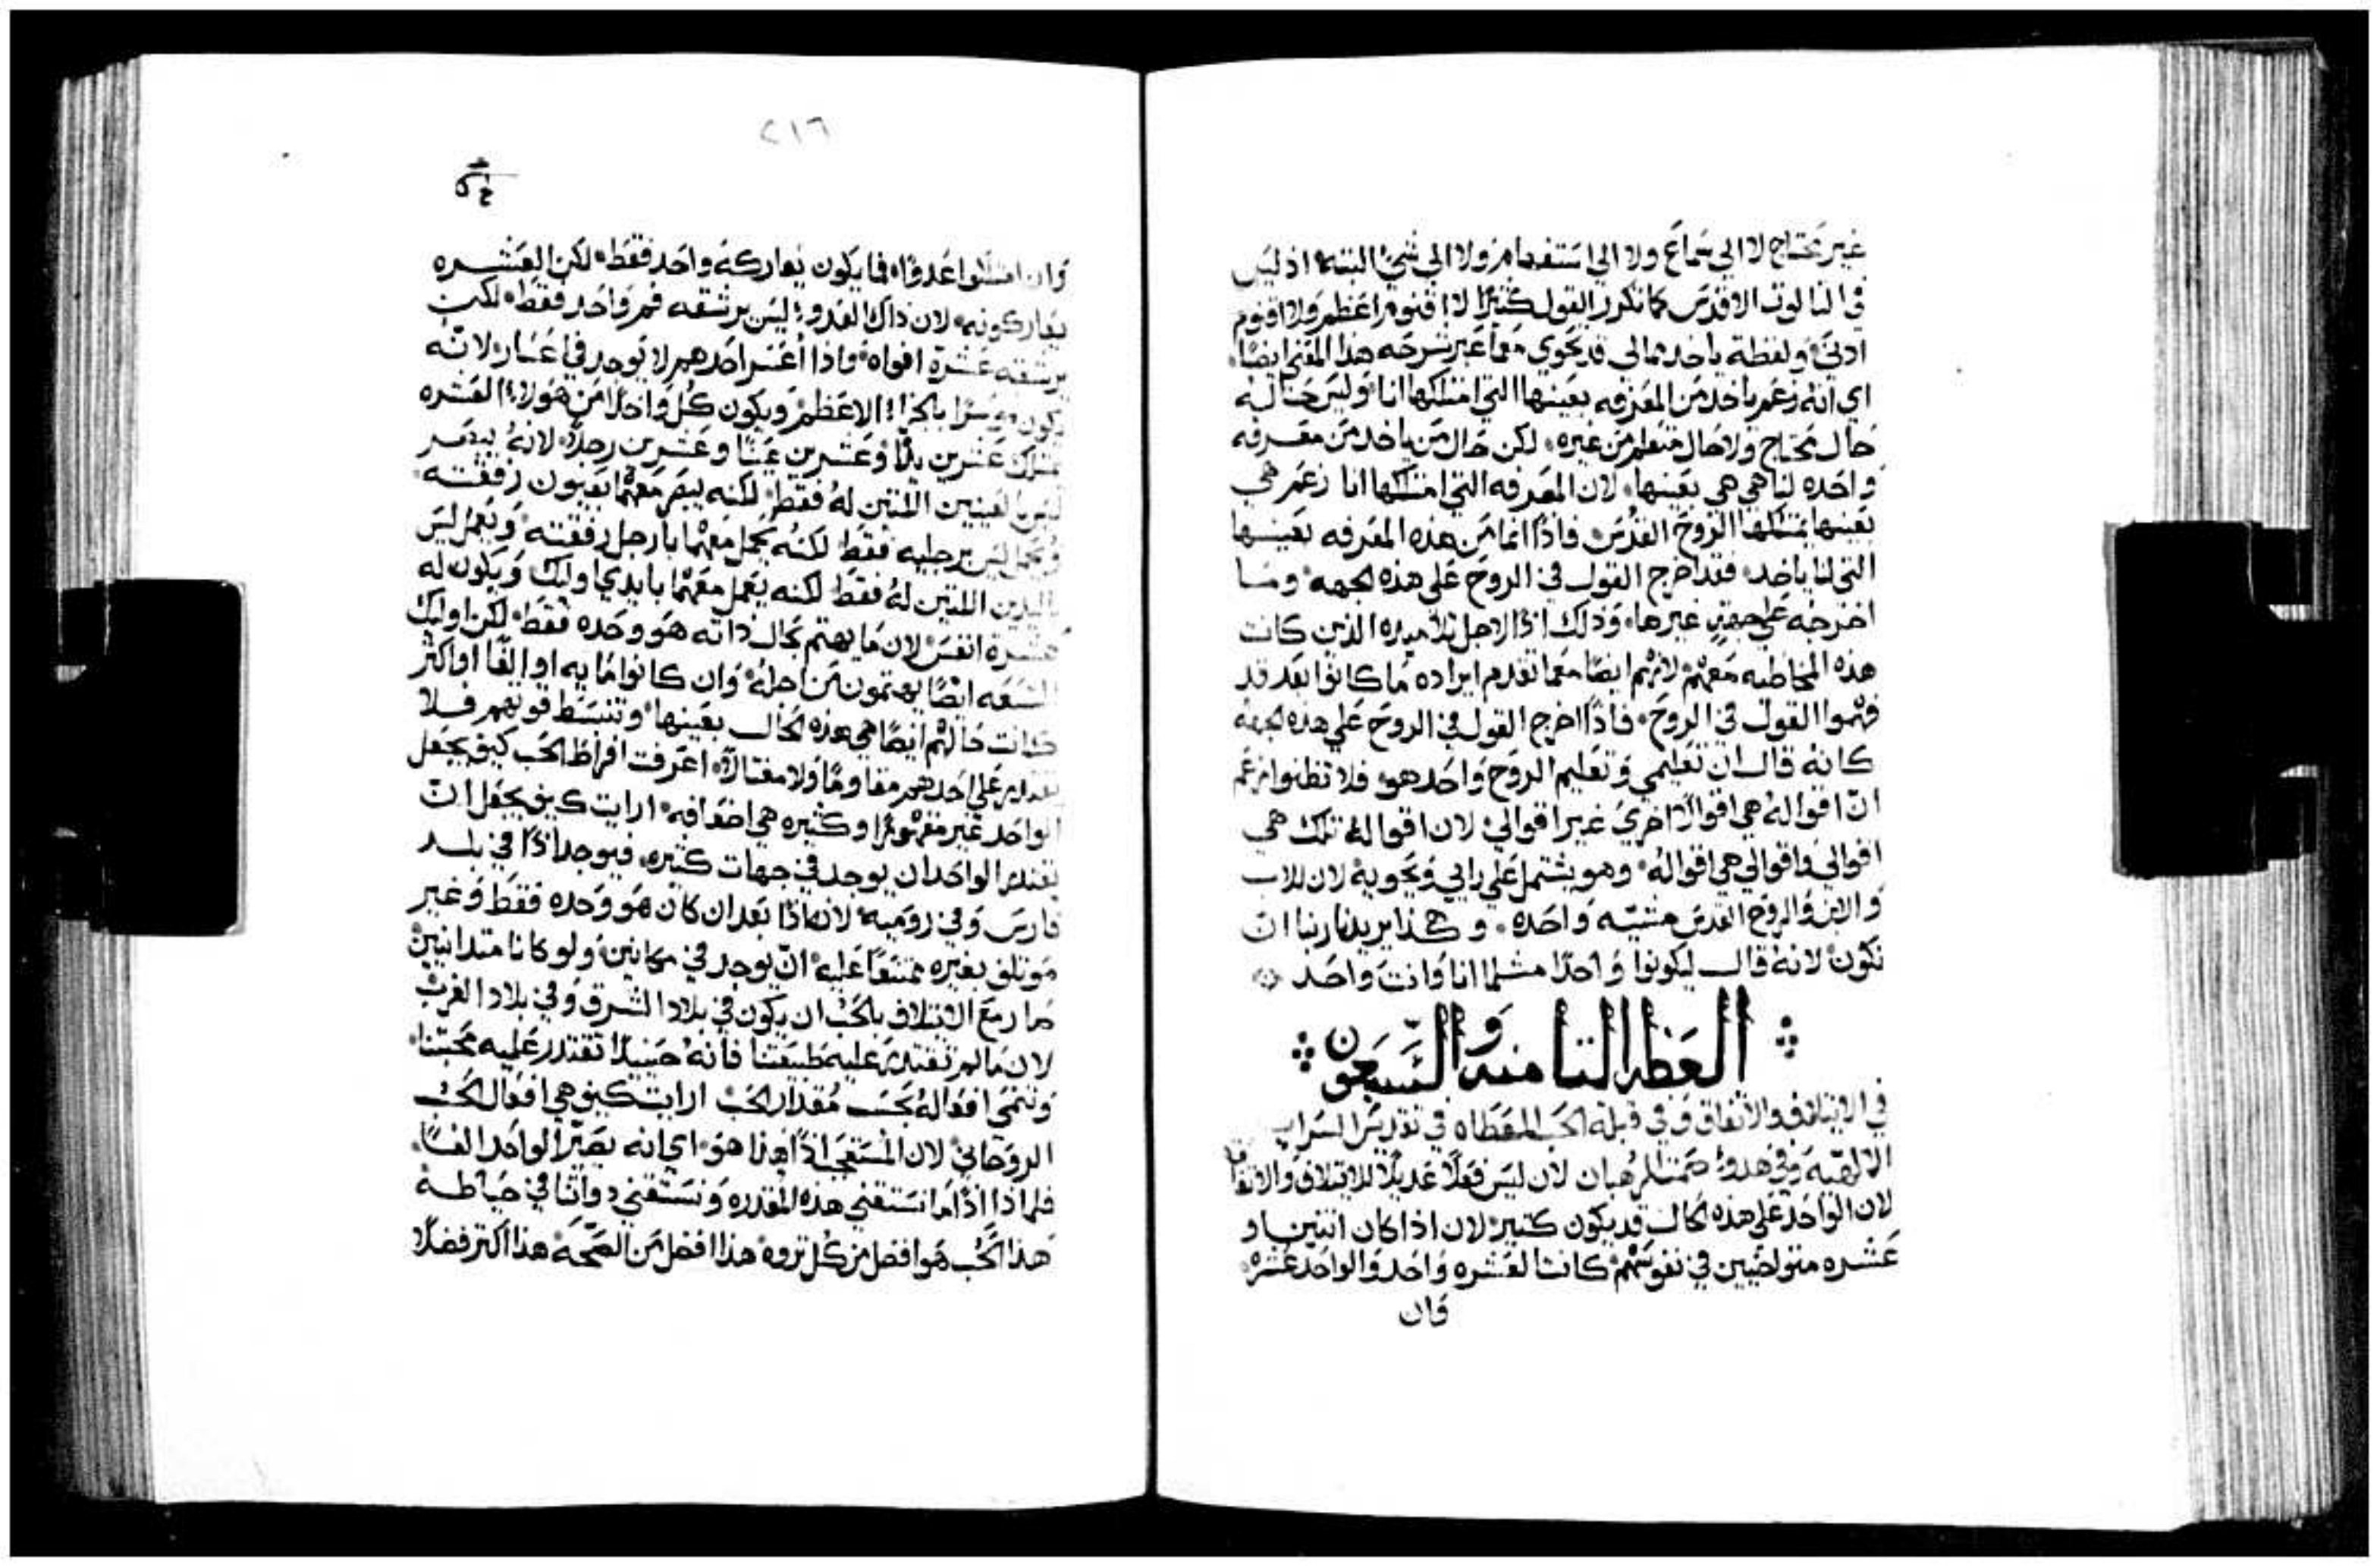 غير محتاج لا الي سماع ولا الي استفهام ولا الي شي البته اذ ليس
في الثالوث الاقدس كما نكرر القول كثيرًا لا اقنوم اعظم ولا اقنوم
ادني ولفظة ياخد ممالي قد تحوي معما غبر شرحه هذا المعني ايضًا
اي انه زعم ياخد من المعرفه بعينها التي امتلكها انا وليس حاله
حال محتاج ولا حال متعلم من غيره لكن حال من ياخد من معرفه
واحده لنا هي هي بعينها لان المعرفه التي امتلكها انا زعم هي
بعينها يمتلكها الروح القدس فاذًا انما من هذه المعرفه بعينها
التي لنا ياخد فقد اخرج القول في الروح علي هذه الجهه وما
اخرجه علي جهةٍ غيرها وذلك اذًا لاجل تلاميده الذين كانت
هذه المخاطبه معهم لانهم ايضًا معما تقدم ايراده ما كانوا بعد قد
فهموا القول في الروح فاذًا اخرج القول في الروح علي هذه الجهه
كانه قال ان تعليمي وتعليم الروح واحد هو فلا تظنوا زعم
ان اقواله هي اقوالًا اخري غير اقوالي لان اقواله تلك هي
اقوالي واقوالي هي اقواله وهو يشتمل علي رايي ويحويه لان للاب
والابن والروح القدس مشيّه واحده وهكذا يريدنا ربنا ان
نكون لانه قال ليكونوا واحدًا مثلما انا وانت واحد
العظه الثامنه والسبعون
في الايتلاف والاتفاق وفي قبلة الحب المعطاه في تقديس السراير
الالهيه وفي هدوء صمت الرهبان لان ليس فعلًا عديلًا للايتلاف والاتفاق
لان الواحد علي هذه الحال قد يكون كثير لان اذا كان اثنين او
عشره متواخيين في نفوسهم كانت العشره واحد والواحد عشره
وان
٢١٦
وان امتلكوا عدوًا فما يكون يعاركه واحد فقط لكن العشره
يعاركونه لان ذاك العدو ليس يرشقه فم واحد فقط لكن
يرشقه عشرة افواه واذا أعسر احدهم لا يوجد في اعسار لانه
يكون موسرًا بالجزء الاعظم ويكون كل واحدًا من هولاء العشره
يمتلك عشرين يدًا وعشرين عينًا وعشرين رجلًا لانه يبصر
ليس بالعينين اللتين له فقط لكنه يبصر معهما بعيون رفقته
ويحمل ليس برجليه فقط لكنه يحمل معهما بارجل رفقته ويعمل ليس
باليدين اللتين له فقط لكنه يعمل معهما بايدي اوليك ويكون له
عشرة انفس لان ما يهتم بحال ذاته هو وحده فقط لكن اوليك
التسعه ايضًا يهتمون من اجله وان كانوا مايه او الفًا او اكثر
كانت حالهم ايضًا هي هذه الحال بعينها وتنبسط قوتهم فلا
تقدر علي احدهم مقاومًا ولا مغتالًا اعرفت افراط الحب كيف يجعل
الواحد غير مقهورًا وكثيره هي اضعافه ارايت كيف يجعل ان
يقتدر الواحد ان يوجد في جهات كثيره فيوجد اذًا في بلد
فارس وفي روميه لانه اذا بعد ان كان هو وحده فقط وغير
موتلف بغيره ممتنعًا عليه ان يوجد في مكانين ولو كانا متدانيين
صار مع الايتلاف بالحب ان يكون في بلاد الشرق وفي بلاد الغرب
لان مالم تقتدر عليه طبيعتنا فانه حينيدًا تقتدر عليه محبتنا
وتنمي افعاله بحسب مقدار الحب ارايت كيف هي افعال الحب
الروحاني لان المستعجب اذًا هذا هو اي انه يصير الواحد الفًا
فلماذا اذًا ما نستقني هذه المقدره ونستقني دواتنا في حياطة
هذا الحب هو افضل من كل ثروه هذا افضل من الصحه هذا اكثر فضلًا